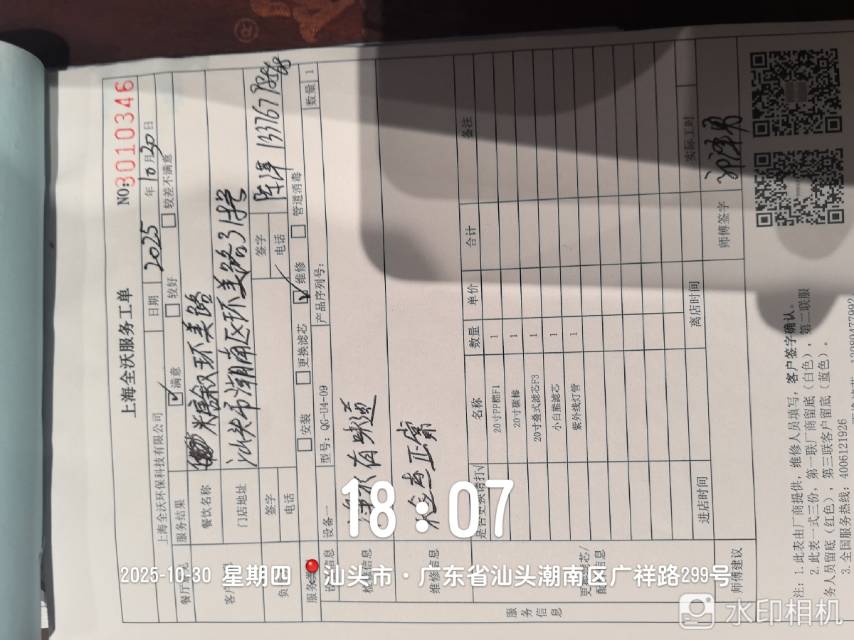 上海全沃服务工单
NO: 3010346
上海全沃环保科技有限公司
日期 2025 年 10 月 30 日
服务结果 满意 较好 较差不满意
餐饮名称 糖叙环美路
门店地址 汕头市潮南区环美路31号
签字
电话
签字
电话 13767
安装 更换滤芯 维修 管道消毒
设备一 型号: QG-U4-09 产品序列号: 数量 1
维修信息 检查正常
名称 数量 单价 合计 备注
20寸PP棉F1 1
20寸碳棒 1
20寸叠式滤芯F3 1
小白熊滤芯 1
紫外线灯管 1
进店时间 离店时间 实际工时
师傅建议 师傅签字
服务信息
注: 1. 此表由厂商提供, 维修人员填写, 客户签字确认。
2. 此表一式三份, 第一联厂商留底 (白色), 第二联服
务人员留底 (红色), 第三联客户留底 (蓝色)。
3. 全国服务热线: 4006121926
18:07
2025-10-30 星期四 汕头市·广东省汕头潮南区广祥路299号
水印相机